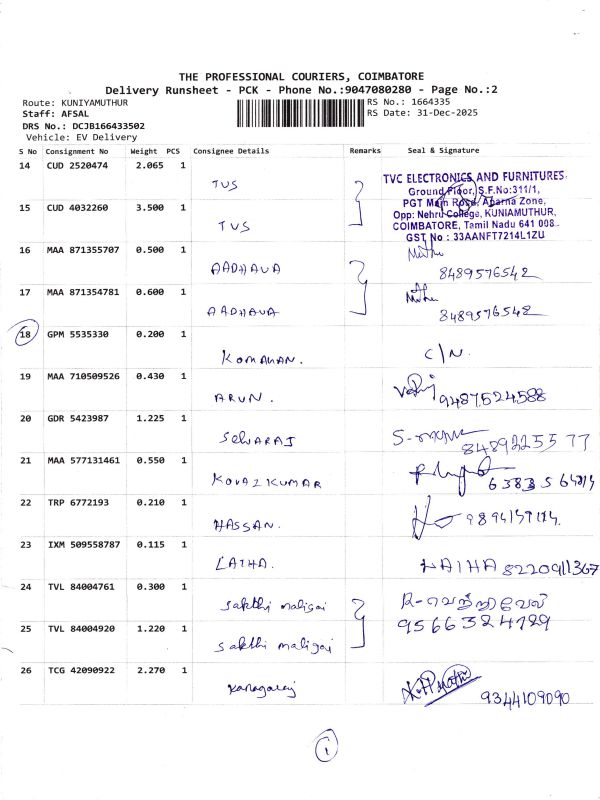 THE PROFESSIONAL COURIERS, COIMBATORE
Delivery Runsheet - PCK - Phone No.:9047080280 - Page No.:2
Route: KUNIYAMUTHUR
Staff: AFSAL
DRS No.: DCJB166433502
Vehicle: EV Delivery
RS No.: 1664335
RS Date: 31-Dec-2025
S No Consignment No Weight PCS Consignee Details Remarks Seal & Signature
14 CUD 2520474 2.065 1 TVS
TVC ELECTRONICS AND FURNITURES
Ground Floor, S.F.No:311/1,
PGT Main Road, Aparna Zone,
Opp: Nehru College, KUNIAMUTHUR,
COIMBATORE, Tamil Nadu 641 008.
GST No : 33AANFT7214L1ZU
15 CUD 4032260 3.500 1 TVS
16 MAA 871355707 0.500 1 AADHAVA Muthu 8489576542
17 MAA 871354781 0.600 1 AADHAVA Muthu 8489576542
18 GPM 5535330 0.200 1 KOMAHAN. C/N.
19 MAA 710509526 0.430 1 ARUN. 9487524588
20 GDR 5423987 1.225 1 SELVARAJ 8489225577
21 MAA 577131461 0.550 1 KOVAI KUMAR
22 TRP 6772193 0.210 1 HASSAN.
23 IXM 509558787 0.115 1 LATHA. 8220911367
24 TVL 84004761 0.300 1 sakthi maligai R-வெற்றிவேல்
9566324729
25 TVL 84004920 1.220 1 sakthi maligai
26 TCG 42090922 2.270 1 Kanagaraj 9344109090
1